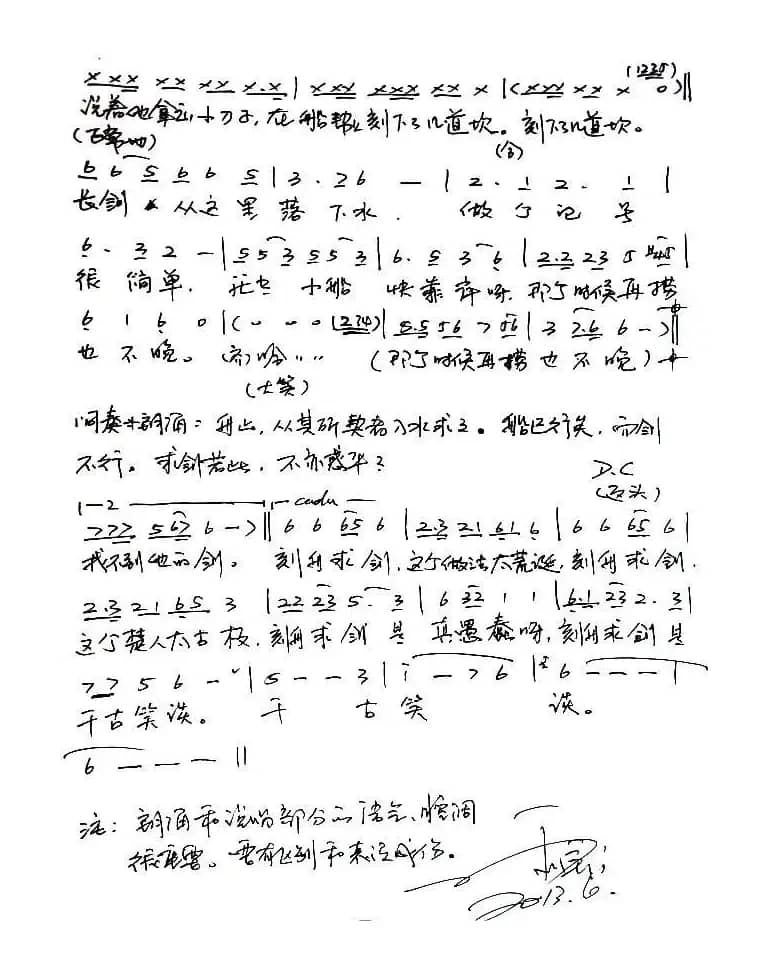 (1235)
x x x x x x x x . x | x x x x x x x x x | (x x x x x x 0) ‖
说着他拿出小刀子，在船帮上刻下了几道坎。刻下了几道坎。
(合)
6 6 5 6 6 5 | 3 . 2 6 — | 2 . 1 2 . 1 |
长剑从这里落下水．做个记号
6 . 3 2 — | 5 5 3 5 5 3 | 6 . 5 3 6 | 2.2 2 3 5
很简单．小船快靠岸呀，那个时候再捞
6 1 6 0 | (0 0 0 1234) | 5.5 5 6 7 5 6 | 3 7.6 6 — ) ‖
也不晚。哈〃〃 (那个时候再捞也不晚)
(大笑)
间奏+朗诵：舟止，从其所契者入水求之。船已行矣，而剑
不行。求剑若此，不亦惑乎？
D.C
1—2 coda
7 7 7 5 6 7 6 — ) ‖ 6 6 6 5 6 | 2.3 2 1 6 1 6 | 6 6 6 5 6 |
找不到他的剑。刻舟求剑，这个做法太荒诞，刻舟求剑．
2.3 2 1 6 5 3 | 2 2 2 3 5 . 3 | 6 3 2 1 1 | 6.1 2 3 2 . 3 |
这个楚人太古板．刻舟求剑是真愚蠢呀，刻舟求剑是
7 7 5 6 — ˅ | 5 — — 3 | i — 7 6 | 6 — — — |
千古笑谈。千古笑谈。
6 — — — ‖
注：朗诵和说唱部分的语气、腔调
很重要。要有区别和表演成份。
2013.6.